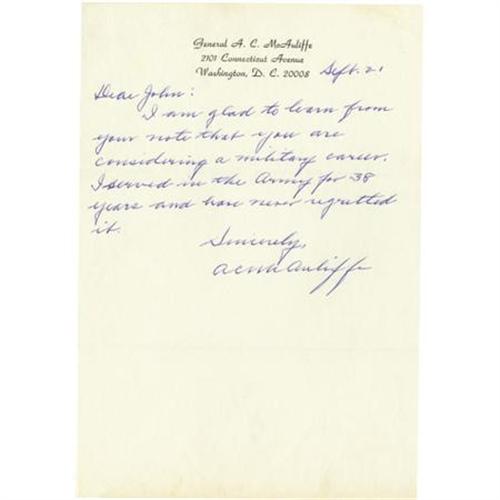 General A. C. McAuliffe
2101 Connecticut Avenue
Washington, D. C. 20008
Sept. 21
Dear John:
I am glad to learn from
your note that you are
considering a military career.
I served in the Army for 38
years and have never regretted
it.
Sincerely,
A C McAuliffe